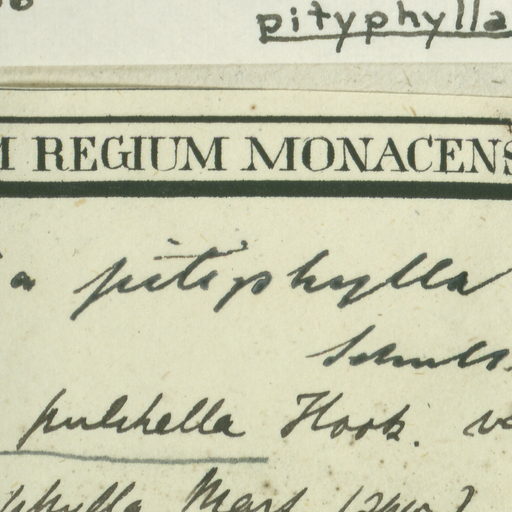 pityphylla
M REGIUM MONACENS
a pitÿphylla
Schult.
pulchella Hook. va
phylla Mart